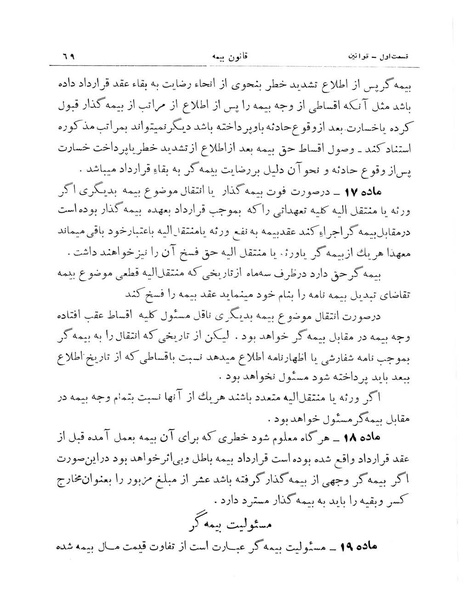 قسمت اول - قوانین قانون بیمه ۶۹
بیمه گر پس از اطلاع تشدید خطر بنحوی از انحاء رضایت به بقاء عقد قرارداد داده
باشد مثل آنکه اقساطی از وجه بیمه را پس از اطلاع از مراتب از بیمه گذار قبول
کرده یا خسارت بعد از وقوع حادثه باو پرداخته باشد دیگر نمیتواند بمراتب مذکوره
استناد کند . وصول اقساط حق بیمه بعد از اطلاع از تشدید خطر یا پرداخت خسارت
پس از وقوع حادثه و نحو آن دلیل بر رضایت بیمه گر به بقاء قرارداد میباشد .
ماده ۱۷ - در صورت فوت بیمه گذار یا انتقال موضوع بیمه بدیگری اگر
ورثه یا منتقل الیه کلیه تعهداتی را که بموجب قرارداد بعهده بیمه گذار بوده است
در مقابل بیمه گر اجراء کند عقد بیمه به نفع ورثه یا منتقل الیه باعتبار خود باقی میماند
معهذا هر یک از بیمه گر یا ورثه یا منتقل الیه حق فسخ آن را نیز خواهند داشت .
بیمه گر حق دارد در ظرف سه ماه از تاریخی که منتقل الیه قطعی موضوع بیمه
تقاضای تبدیل بیمه نامه را بنام خود مینماید عقد بیمه را فسخ کند
در صورت انتقال موضوع بیمه بدیگری ناقل مسئول کلیه اقساط عقب افتاده
وجه بیمه در مقابل بیمه گر خواهد بود . لیکن از تاریخی که انتقال را به بیمه گر
بموجب نامه سفارشی یا اظهارنامه اطلاع میدهد نسبت باقساطی که از تاریخ اطلاع
ببعد باید پرداخته شود مسئول نخواهد بود .
اگر ورثه یا منتقل الیه متعدد باشند هر یک از آنها نسبت بتمام وجه بیمه در
مقابل بیمه گر مسئول خواهد بود .
ماده ۱۸ - هر گاه معلوم شود خطری که برای آن بیمه بعمل آمده قبل از
عقد قرارداد واقع شده بوده است قرارداد بیمه باطل و بی اثر خواهد بود در این صورت
اگر بیمه گر وجهی از بیمه گذار گرفته باشد عشر از مبلغ مزبور را بعنوان مخارج
کسر و بقیه را باید به بیمه گذار مسترد دارد .
مسئولیت بیمه گر
ماده ۱۹ - مسئولیت بیمه گر عبارت است از تفاوت قیمت مال بیمه شده